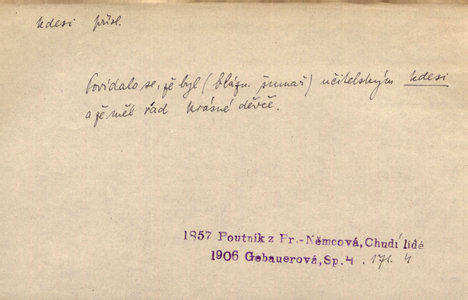 kdesi přísl.
Povídalo se, že byl (blázn. šumař) učitelským kdesi
a že měl rád krásné děvče.
1857 Poutník z Pr.-Němcová, Chudí lidé
1906 Gebauerová, Sp. 4. 171. 4